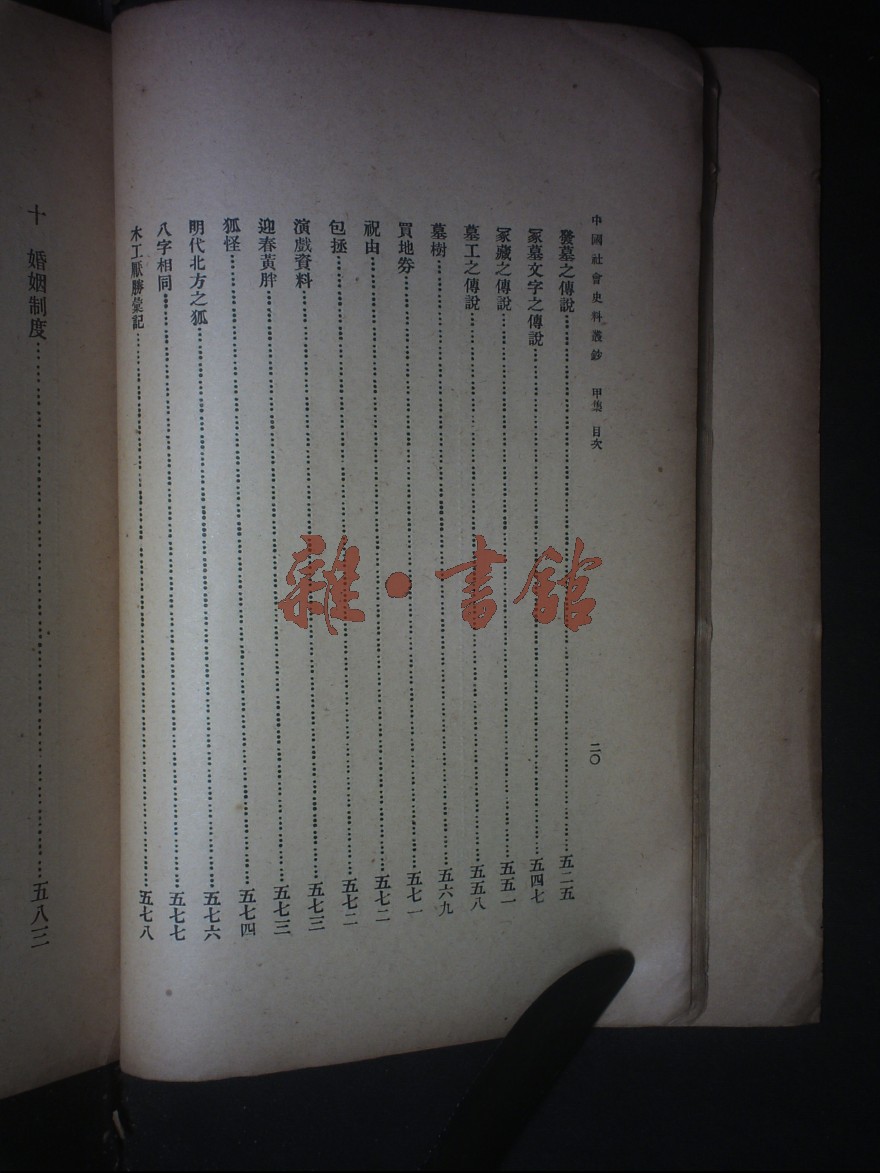 中國社會史料叢鈔 甲集 目次 二〇
發墓之傳說 五二五
冢墓文字之傳說 五四七
冢藏之傳說 五五一
墓工之傳說 五五八
墓樹 五六九
買地券 五七一
祝由 五七二
包拯 五七二
演戲資料 五七三
迎春黃胖 五七三
狐怪 五七四
明代北方之狐 五七六
八字相同 五七七
木工厭勝彙記 五七八
十 婚姻制度 五八三
雜·書館